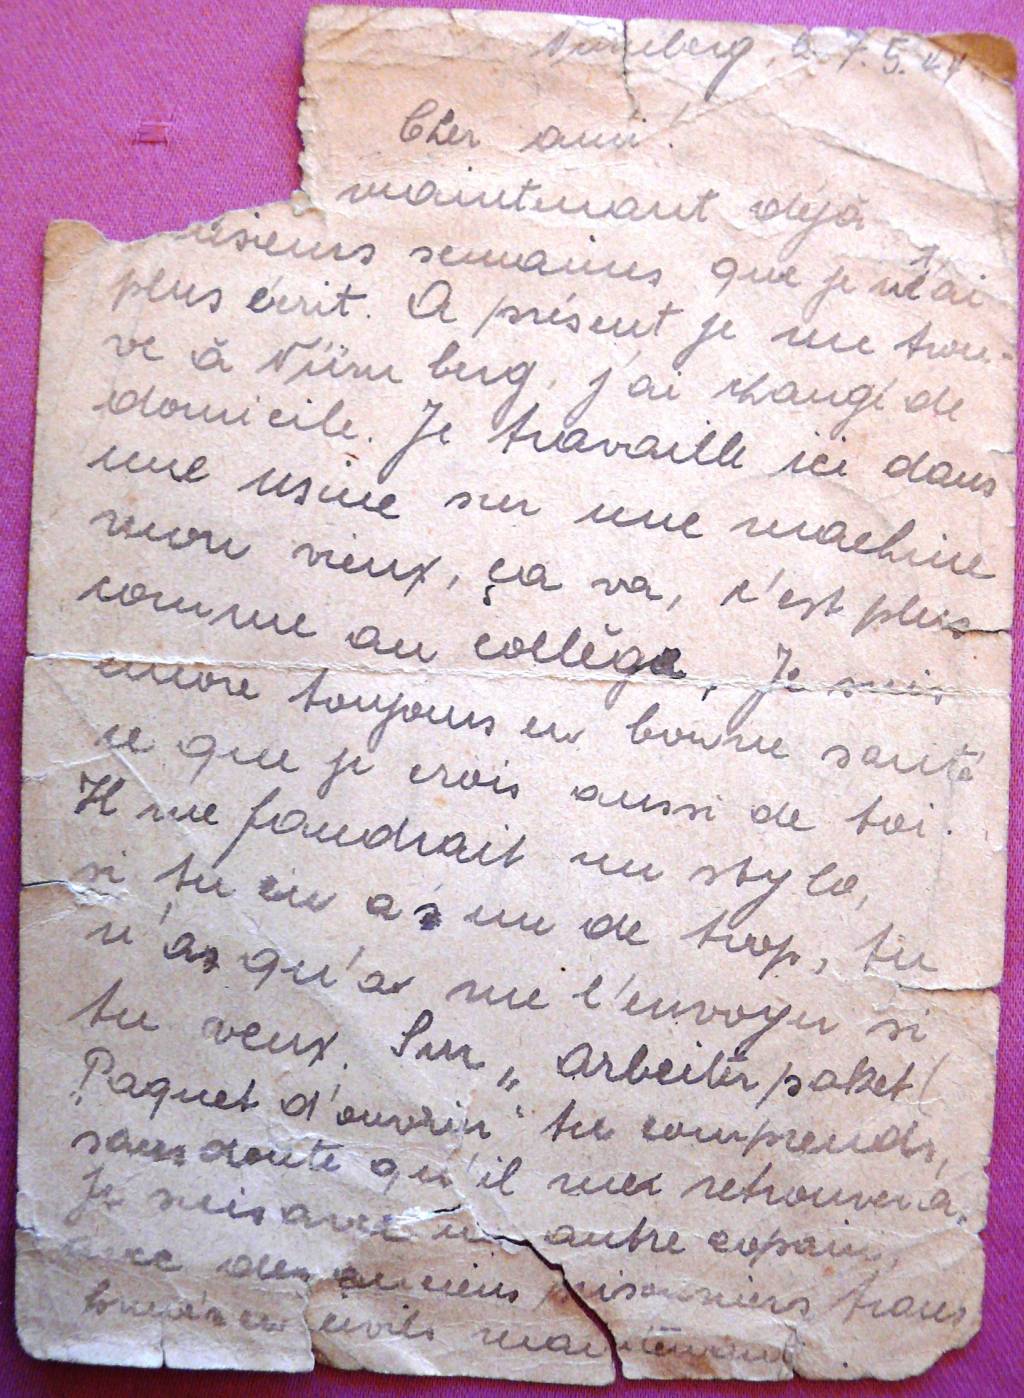 Nürnberg, 7.5.44
Cher ami!
maintenant déjà
usieurs semaines que je n'ai
plus écrit. A présent je me trou-
ve à Nürnberg, j'ai changé de
domicile. Je travaille ici dans
une usine sur une machine
mon vieux, ça va, c'est plus
comme au collège, Je suis
encore toujours en bonne santé
ce que je crois aussi de toi.
Il me faudrait un stylo,
si tu en as un de trop, tu
n'as qu'a me l'envoyer si
tu veux. Sur „Arbeiterpaket (
Paquet d'ouvrier" tu comprends,
sans doute qu'il me retrouvera.
Je suis avec un autre copain,
avec des anciens prisonniers trans
formés en civils maintenant.